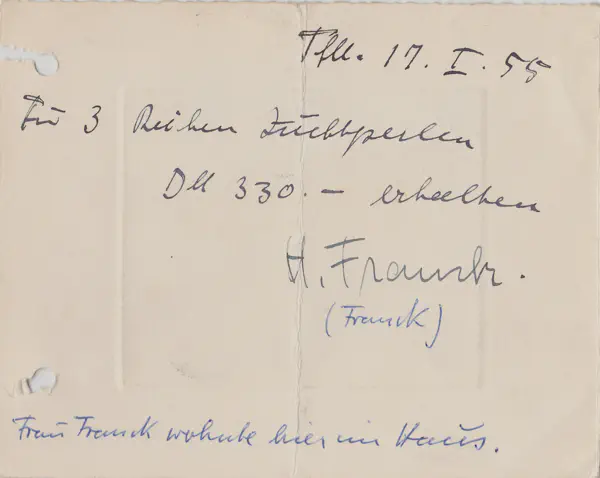 Pfh. 17. I. 55
Für 3 Reihen Zuchtperlen
DM 330.- erhalten
H. Franck.
(Franck)
Frau Franck wohnte hier im Haus.